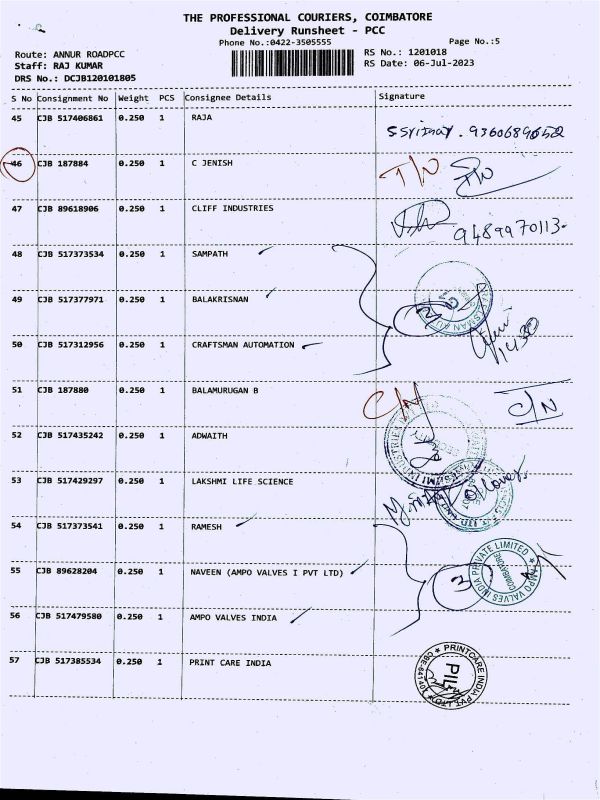 THE PROFESSIONAL COURIERS, COIMBATORE
Delivery Runsheet - PCC
Phone No.:0422-3505555
Page No.:5
Route: ANNUR ROADPCC
RS No.: 1201018
Staff: RAJ KUMAR
RS Date: 06-Jul-2023
DRS No.: DCJB120101805
S No Consignment No Weight PCS Consignee Details Signature
45 CJB 517406861 0.250 1 RAJA
46 CJB 187884 0.250 1 C JENISH T/N
47 CJB 89618906 0.250 1 CLIFF INDUSTRIES
9489970113
48 CJB 517373534 0.250 1 SAMPATH
49 CJB 517377971 0.250 1 BALAKRISNAN
50 CJB 517312956 0.250 1 CRAFTSMAN AUTOMATION
51 CJB 187880 0.250 1 BALAMURUGAN B C/N C/N
52 CJB 517435242 0.250 1 ADWAITH
53 CJB 517429297 0.250 1 LAKSHMI LIFE SCIENCE
54 CJB 517373541 0.250 1 RAMESH
55 CJB 89628204 0.250 1 NAVEEN (AMPO VALVES I PVT LTD) 3
AMPO VALVES INDIA PRIVATE LIMITED
COIMBATORE
56 CJB 517479580 0.250 1 AMPO VALVES INDIA
57 CJB 517385534 0.250 1 PRINT CARE INDIA
PRINTCARE INDIA PVT LTD
PIL